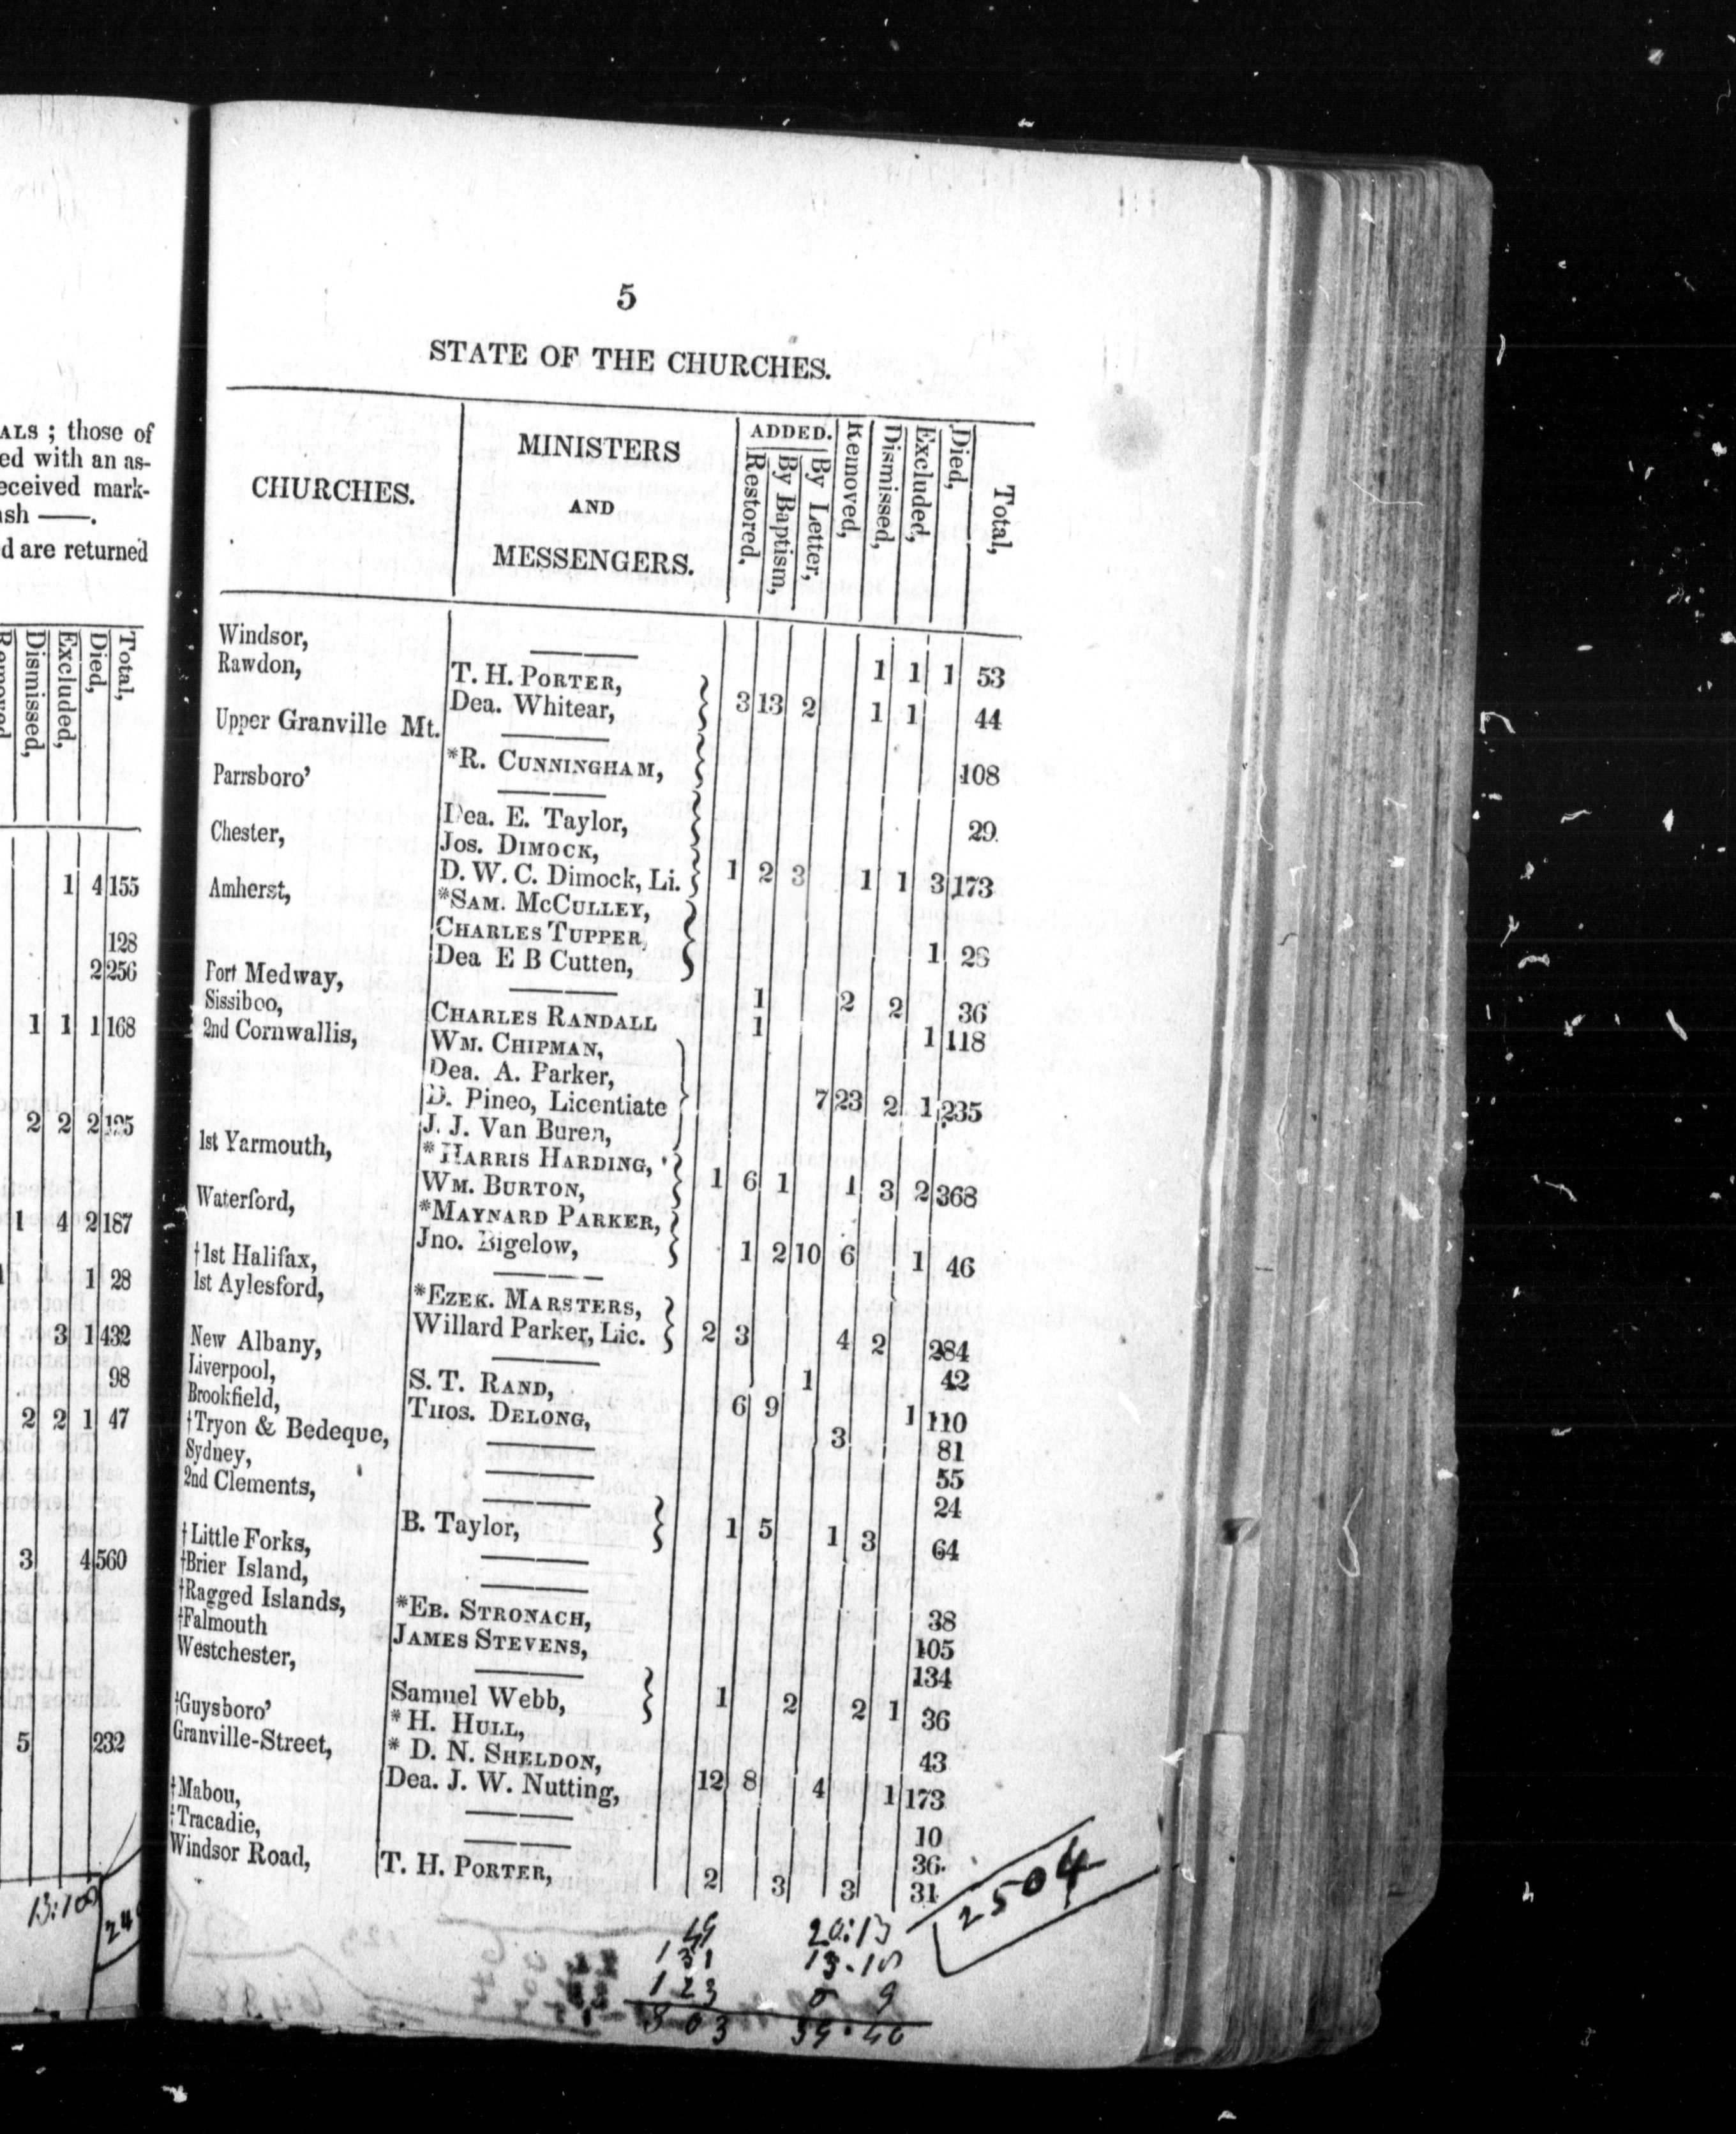 ALS ; those of
ed with an as-
eceived mark-
ash ——.
d are returned
Removed
Dismissed,
Excluded,
Died,
Total,
1 4 155
128
2 256
1 1 1 168
2 2 2 195
1 4 2 187
1 28
3 1 432
98
2 2 1 47
3 4 560
5 232
5
STATE OF THE CHURCHES.
CHURCHES.
MINISTERS
AND
MESSENGERS.
ADDED.
Restored,
By Baptism,
By Letter,
Removed,
Dismissed,
Excluded,
Died,
Total,
Windsor, ——— 1 1 1 53
Rawdon, T. H. PORTER,
Dea. Whitear, 3 13 2 1 1 44
Upper Granville Mt. ———
*R. CUNNINGHAM, 108
Parrsboro’ ———
Dea. E. Taylor, 29.
Chester, Jos. DIMOCK,
D. W. C. Dimock, Li. 1 2 3 1 1 3 173
Amherst, *SAM. MCCULLEY,
CHARLES TUPPER,
Dea E B Cutten, 1 28
Port Medway, ——— 1 2 2 36
Sissiboo, CHARLES RANDALL 1 1 118
2nd Cornwallis, WM. CHIPMAN,
Dea. A. Parker,
D. Pineo, Licentiate 7 23 2 1 235
J. J. Van Buren,
1st Yarmouth, *HARRIS HARDING,
WM. BURTON, 1 6 1 1 3 2 368
Waterford, *MAYNARD PARKER,
Jno. Bigelow, 1 2 10 6 1 46
†1st Halifax, ———
1st Aylesford, *EZEK. MARSTERS,
Willard Parker, Lic. 2 3 4 2 284
New Albany, ——— 1 42
Liverpool, S. T. RAND, 6 9 1 110
Brookfield, THOS. DELONG, 3 81
†Tryon & Bedeque, ——— 55
Sydney, ——— 24
2nd Clements, ———
B. Taylor, 1 5 1 3 64
†Little Forks, ——— 38
†Brier Island, ——— 105
†Ragged Islands, *EB. STRONACH, 134
†Falmouth JAMES STEVENS,
Westchester, ———
Samuel Webb, 1 2 2 1 36
†Guysboro’ *H. HULL, 43
Granville-Street, * D. N. SHELDON,
Dea. J. W. Nutting, 12 8 4 1 173
†Mabou, ——— 10
†Tracadie, ——— 36.
Windsor Road, T. H. PORTER, 2 3 3 31
2504
49 20:13
131
123
303